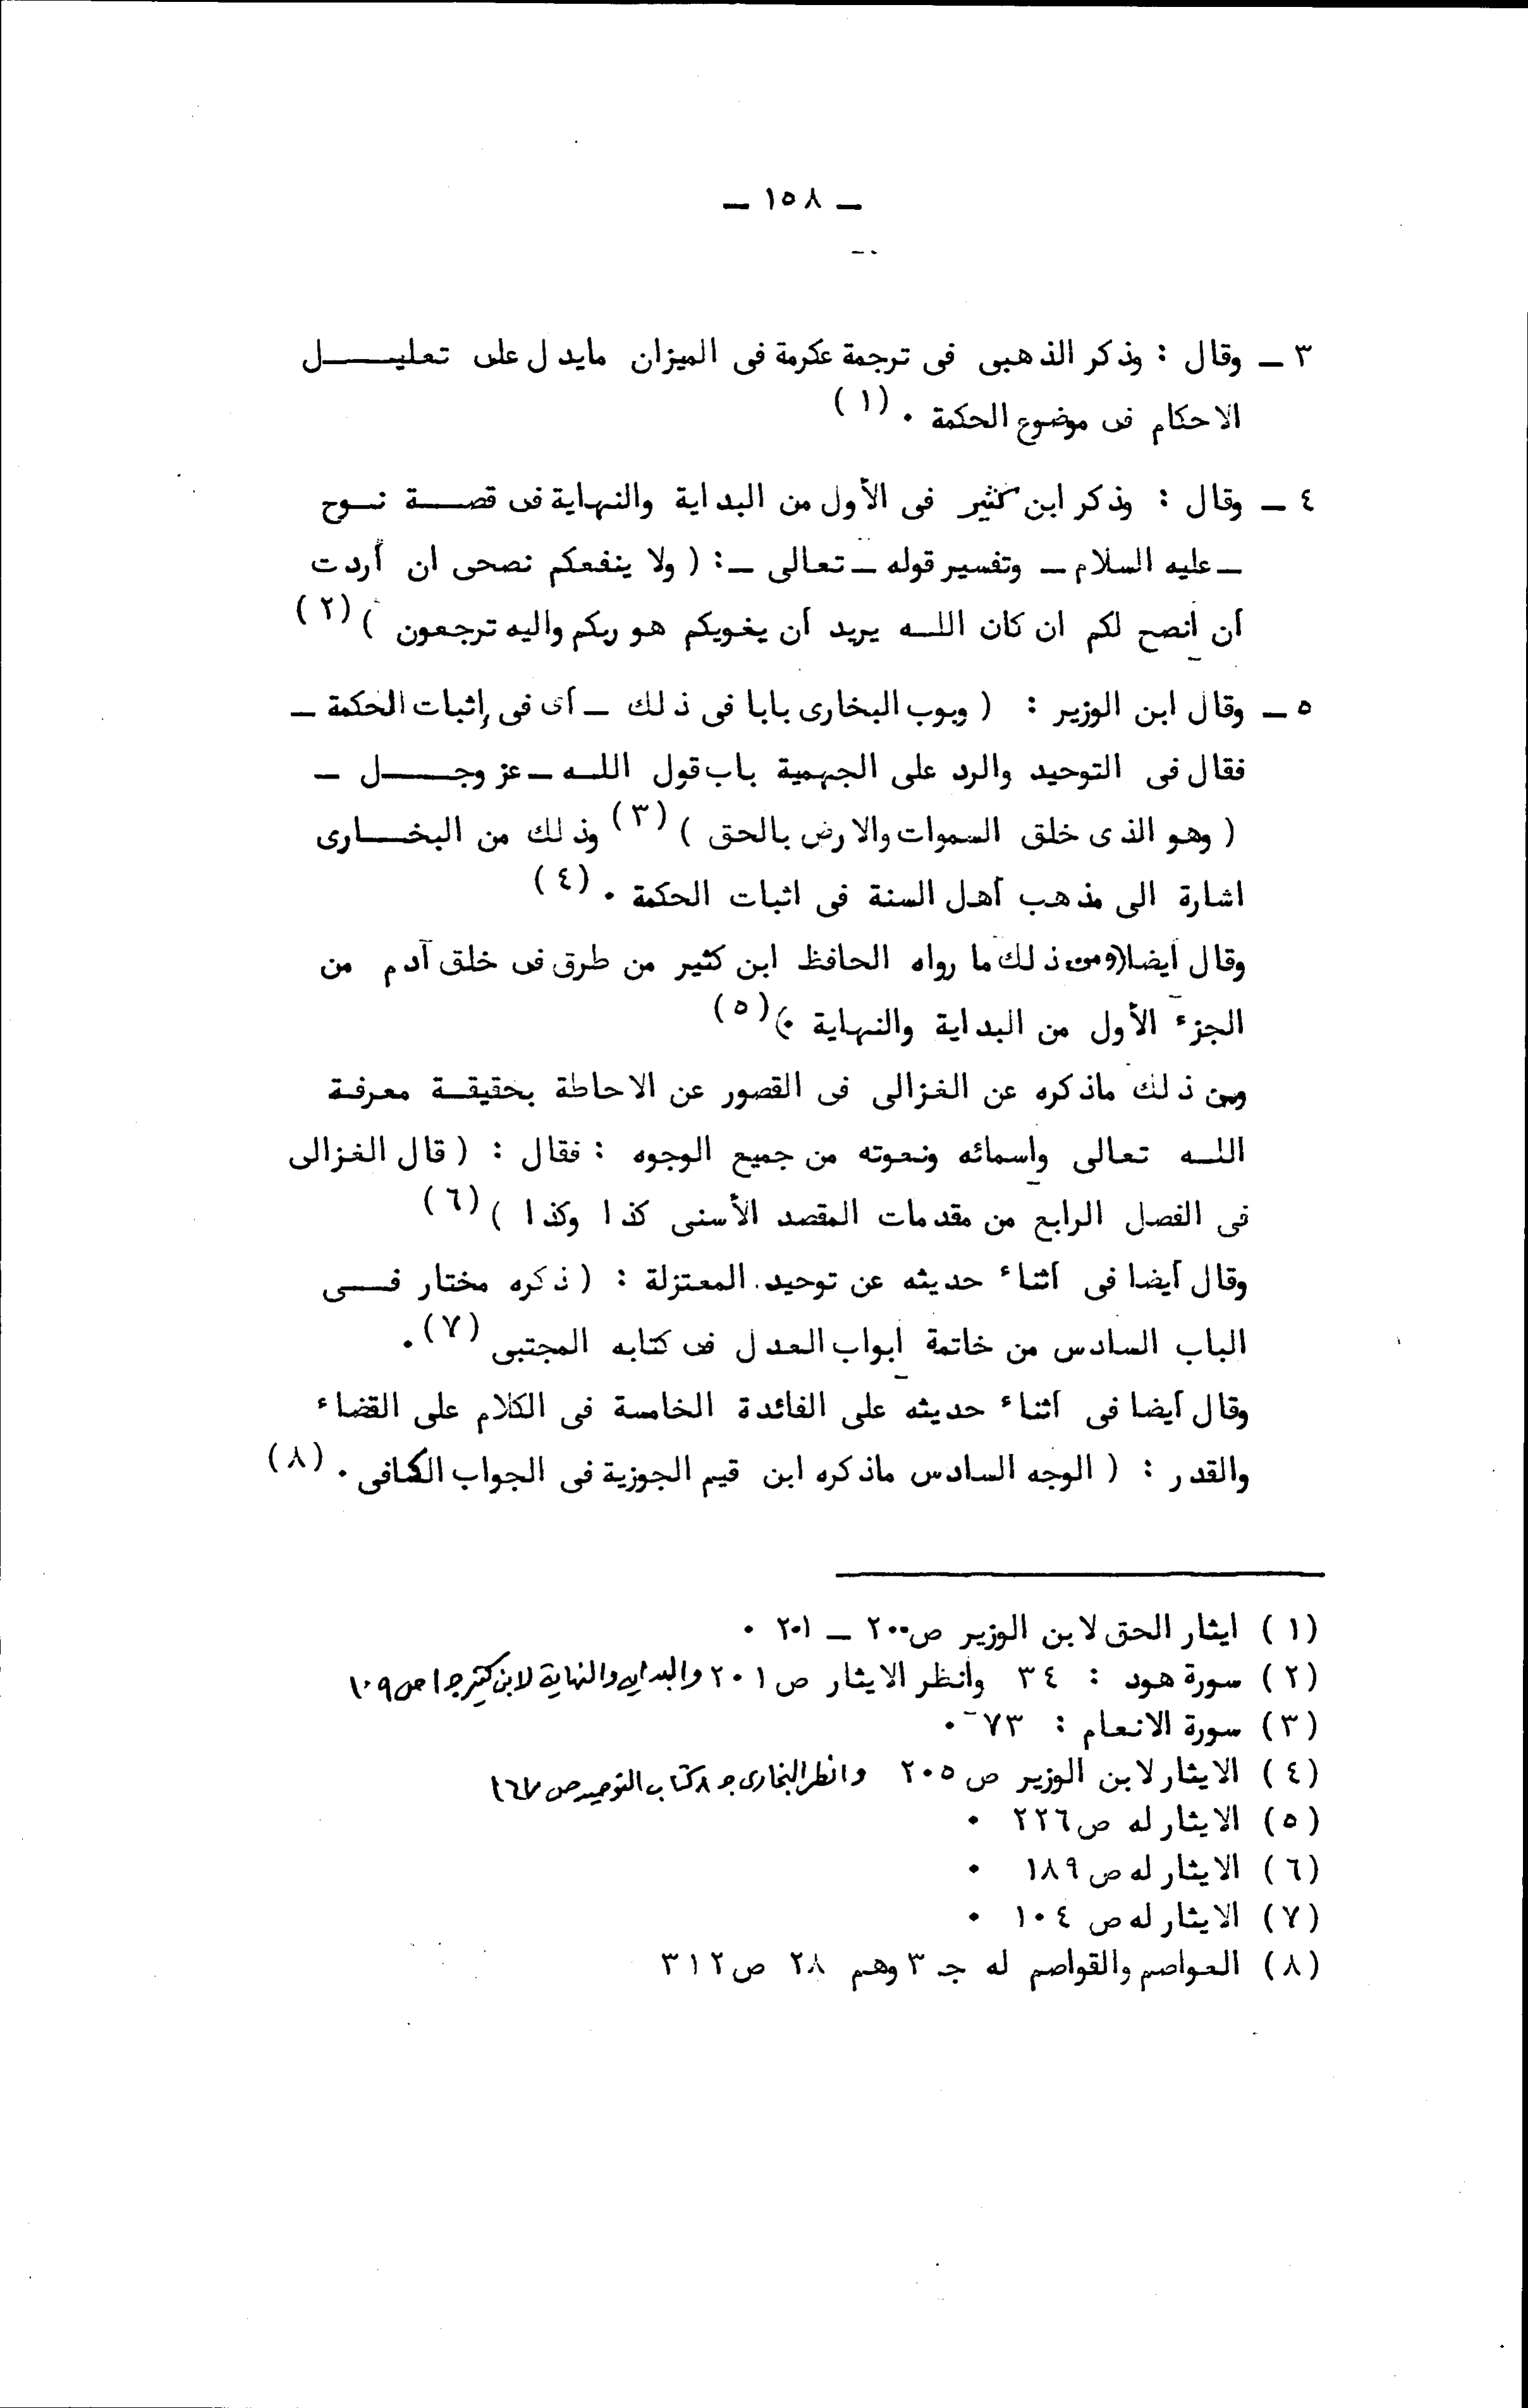 ـ ١٥٨ ـ
٣ ـ وقال : وذكر الذهبى فى ترجمة عكرمة فى الميزان مايدل على تعليــــل
الاحكام فى موضوع الحكمة . (١)
٤ ـ وقال : وذكر ابن كثير فى الأول من البداية والنهاية فى قصـــة نــوح
ـ عليه السلام ـ وتفسير قوله ـ تعالى ـ: ( ولا ينفعكم نصحى ان أردت
أن أنصح لكم ان كان اللـه يريد أن يغويكم هو ربكم واليه ترجعون ) (٢)
٥ ـ وقال ابن الوزير : ( وبوب البخارى بابا فى ذلك ـ أى فى إثبات الحكمة ـ
فقال فى التوحيد والرد على الجهمية باب قول اللـه ـ عز وجــــل ـ
( وهو الذى خلق السموات والارض بالحق ) (٣) وذلك من البخـــارى
اشارة الى مذهب أهل السنة فى اثبات الحكمة . (٤)
وقال أيضا (ومن ذلك ما رواه الحافظ ابن كثير من طرق فى خلق آدم من
الجزء الأول من البداية والنهاية .) (٥)
ومن ذلك ماذكره عن الغزالى فى القصور عن الاحاطة بحقيقــة معرفـة
اللـه تعالى وأسمائه ونعوته من جميع الوجوه : فقال : ( قال الغزالى
فى الفصل الرابع من مقدمات المقصد الأسنى كذا وكذا ) (٦)
وقال أيضا فى أثناء حديثه عن توحيد المعتزلة : ( ذكره مختار فـــى
الباب السادس من خاتمة أبواب العدل فى كتابه المجتبى (٧).
وقال أيضا فى أثناء حديثه على الفائدة الخامسة فى الكلام على القضاء
والقدر : ( الوجه السادس ماذكره ابن قيم الجوزية فى الجواب الكافى . (٨)
(١) ايثار الحق لابن الوزير ص ٢٠٠ ـ ٢٠١ .
(٢) سورة هود : ٣٤ وانظر الايثار ص ٢٠١ والبداية والنهاية لابن كثير جـ١ ص ١٠٩
(٣) سورة الانعام : ٧٣ .
(٤) الايثار لابن الوزير ص ٢٠٥ وانظر البخارى جـ ٨ كتاب التوحيد ص ١٦٧
(٥) الايثار له ص ٢٢٦ .
(٦) الايثار له ص ١٨٩ .
(٧) الايثار له ص ١٠٤ .
(٨) العواصم والقواصم له جـ ٣ وهم ٢٨ ص ٣١٢